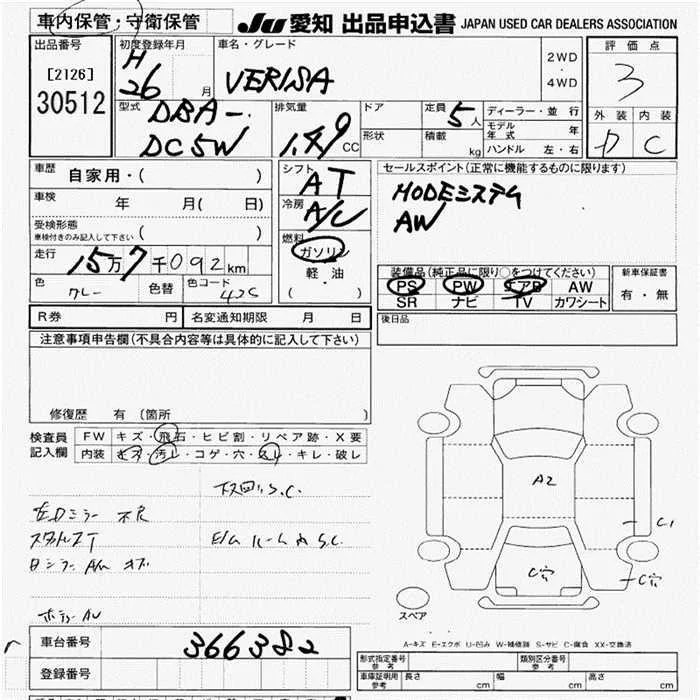 車内保管・守衛保管
JU 愛知 出品申込書 JAPAN USED CAR DEALERS ASSOCIATION
出品番号
[2126]
30512
初度登録年月
H
26 月
車名・グレード
VERISA
2WD
・
4WD
評価点
3
外装 内装
D C
型式
DBA-
DC5W
排気量
1.49 CC
ドア
形状
定員 5人
積載 kg
ディーラー・並行
モデル年式 年
ハンドル 左・右
車歴
自家用・( )
車検
年 月( 日)
受検形態
車検付きのみ記入して下さい ( )
走行
15万7千092km
色
グレー
色替
色コード
42S
シフト
AT
冷房
A/C
燃料
ガソリン
軽油
( ・ )
セールスポイント(正常に機能するものに限ります)
MODEシステム
AW
装備品(純正品に限り○をつけてください)
PS PW エアB AW
SR ナビ TV カワシート
新車保証書
有・無
R券 円
名変通知期限 月 日
後日品
注意事項申告欄(不具合内容等は具体的に記入して下さい)
修復歴 有(箇所 )
検査員
記入欄
FW キズ・飛石・ヒビ割・リペア跡・X要
内装 キズ・汚レ・コゲ・穴・スレ・キレ・破レ
下回りS.C.
左Dミラー 不良
スタルスT
E/Gルーム内 S.C.
A2
C1
C穴
C穴
スペア
A-キズ E-エクボ U-凹み W-補修跡 S-サビ C-腐食 XX-交換済
車台番号
366382
登録番号
形式指定番号
参考
類別区分番号
参考
車庫証明用
参考
長さ cm
幅 cm
高さ cm